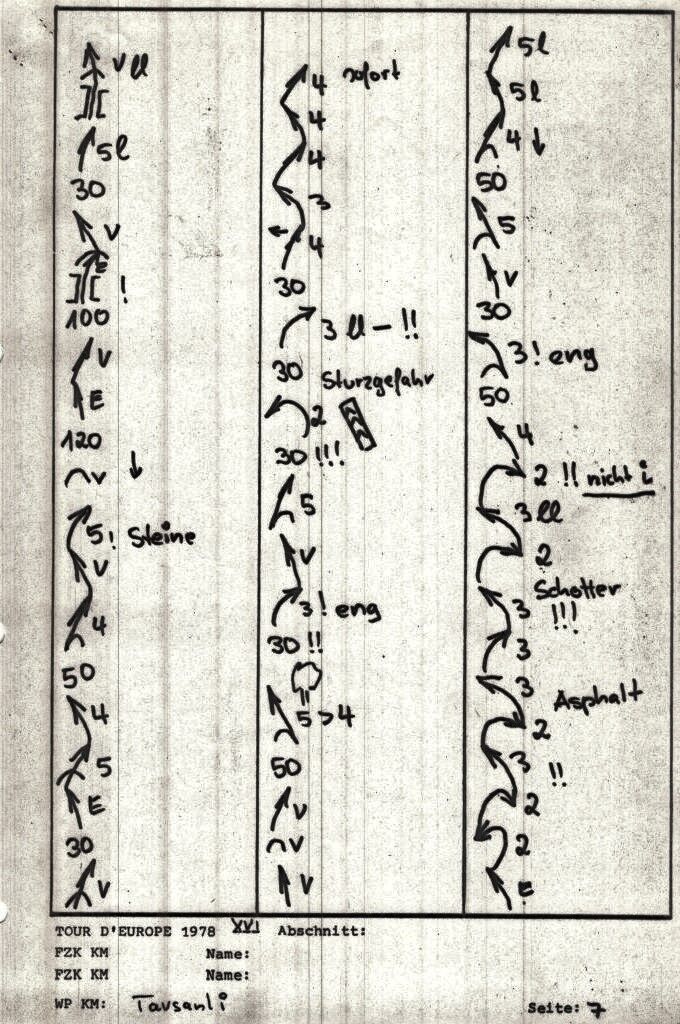 V ll
5 l
30
V
E
!
100
V
E
120
V
5! Steine
V
4
50
4
5
E
30
V
4 sofort
4
4
3
4
30
3 ll – !!
30 Sturzgefahr
2
30 !!!
5
V
3! eng
30 !!
5 > 4
50
V
V
V
5 l
5 l
4
50
5
V
30
3! eng
50
4
2 !! nicht i
3 ll
2
Schotter
3 !!!
3
3 Asphalt
2
3 !!
2
2
E
TOUR D'EUROPE 1978 XVI Abschnitt:
FZK KM Name:
FZK KM Name:
WP KM: Tavsanli Seite: 7